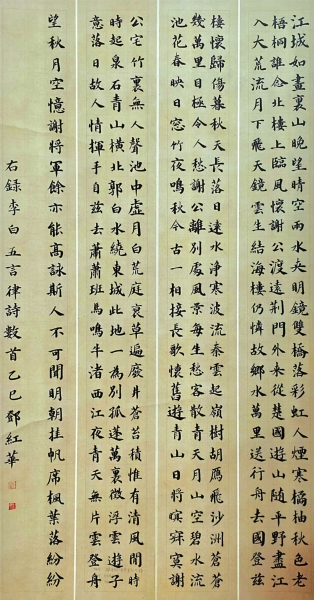 江城如畫裏山晚望晴空兩水夾明鏡雙橋落彩虹人煙寒橘柚秋色老
梧桐誰念北樓上臨風懷謝公渡遠荊門外來從楚國遊山隨平野盡江
入大荒流月下飛天鏡雲生結海樓仍憐故鄉水萬里送行舟去國登茲
樓懷歸傷暮秋天長落日遠水淨寒波流秦雲起嶺樹胡鴈飛沙洲蒼蒼
幾萬里目極令人愁謝公離別處風景每生愁客散青天月山空碧水流
池花春映日窓竹夜鳴秋今古一相接長歌懷舊遊青山日將暝寂寞謝
公宅竹裏無人聲池中虛月白荒庭衰草遍廢井蒼苔積惟有清風閒時
時起泉石青山橫北郭白水繞東城此地一為別孤蓬萬裏徵浮雲遊子
意落日故人情揮手自茲去蕭蕭班馬鳴牛渚西江夜青天無片雲登舟
望秋月空憶謝將軍餘亦能高詠斯人不可聞明朝挂帆席楓葉落紛紛
右錄李白五言律詩數首乙巳鄧紅華